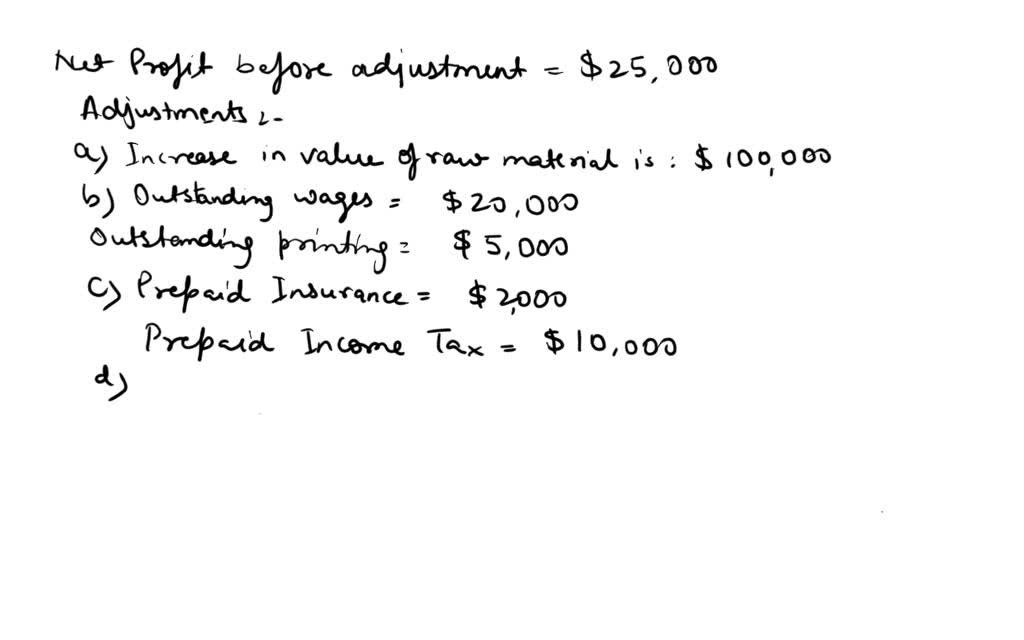 Net Profit before adjustment = $25,000
Adjustments :-
a) Increase in value of raw material is : $ 100,000
b) Outstanding wages = $20,000
Outstanding printing = $ 5,000
c) Prepaid Insurance = $ 2,000
Prepaid Income Tax = $10,000
d)